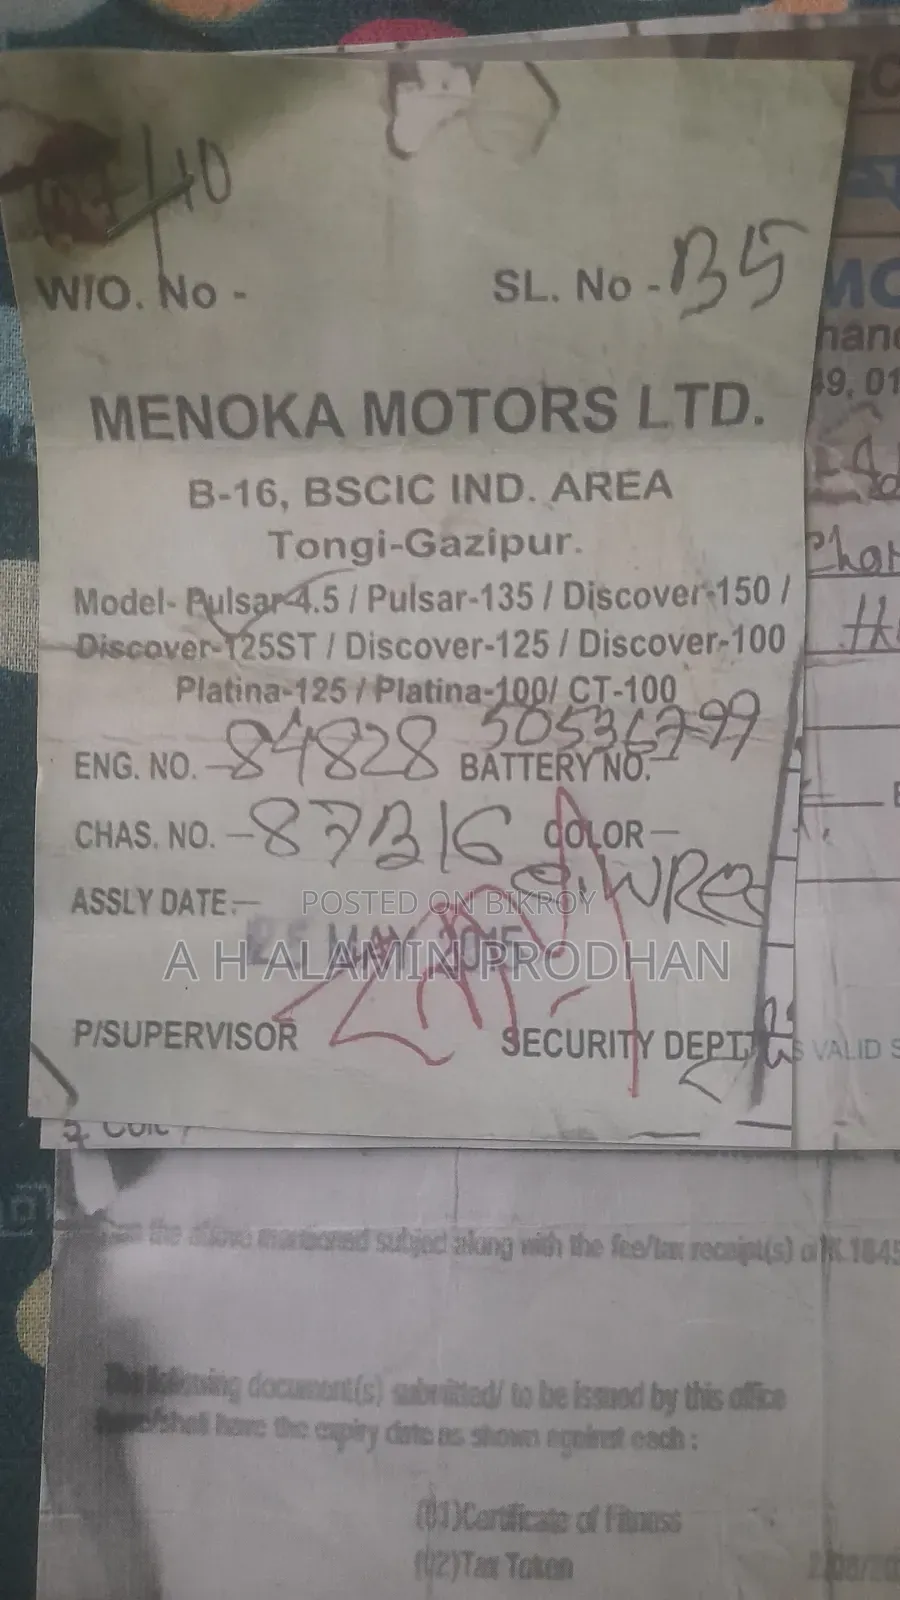 /10
W/O. No -
SL. No - B5
MENOKA MOTORS LTD.
B-16, BSCIC IND. AREA
Tongi-Gazipur.
Model- Pulsar-4.5 / Pulsar-135 / Discover-150 /
Discover-125ST / Discover-125 / Discover-100
Platina-125 / Platina-100/ CT-100
ENG. NO. - 84828 BATTERY NO.-
CHAS. NO. - 87316 COLOR-
ASSLY DATE:-
POSTED ON BIKROY
MAY 2015
A H ALAMIN PRODHAN
P/SUPERVISOR
SECURITY DEPTT.
VALID S
the above mentioned subject along with the fee/tax receipt(s) of
The following document(s) submitted/ to be issued by this office
have/shall have the expiry date as shown against each :
(01)Certificate of Fitness
(02)Tax Token